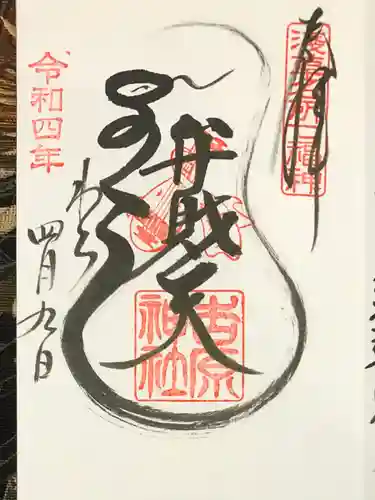 奉拝
浅草名所七福神
弁財天
吉原
神社
令和四年
四月九日